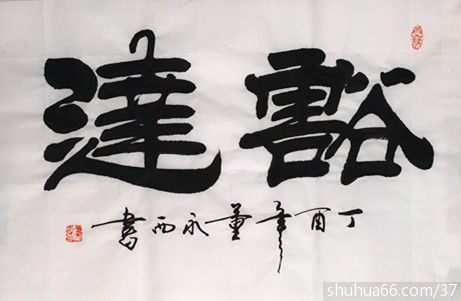 豁達
丁酉年董永西書
shuhua66.com/37